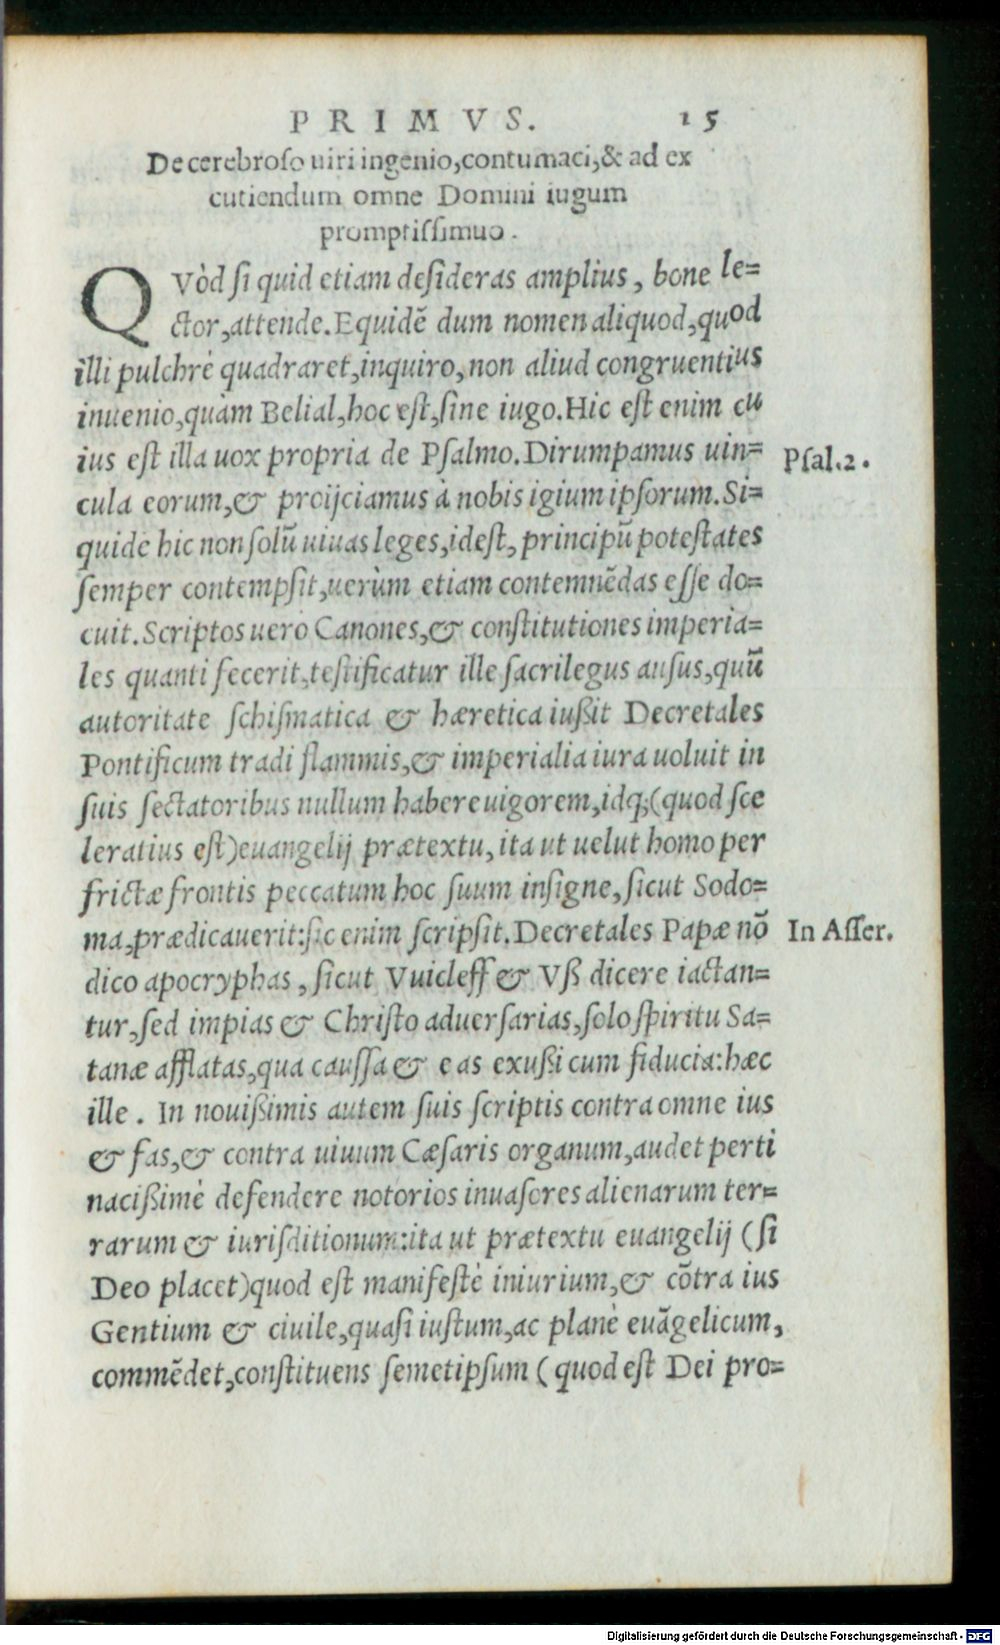 PRIMVS. 15
De cerebroso uiri ingenio, contumaci, & ad ex
cutiendum omne Domini iugum
promptissimuo.
QVòd si quid etiam desideras amplius, bone le=
ctor, attende. Equidẽ dum nomen aliquod, quod
illi pulchrè quadraret, inquiro, non aliud congruentius
inuenio, quàm Belial, hoc est, sine iugo. Hic est enim cu
ius est illa uox propria de Psalmo. Dirumpamus uin=
cula eorum, & proijciamus à nobis igium ipsorum. Si=
Psal. 2.
quidẽ hic non solũ uiuas leges, idest, principũ potestates
semper contempsit, uerùm etiam contemnẽdas esse do=
cuit. Scriptos uero Canones, & constitutiones imperia=
les quanti fecerit, testificatur ille sacrilegus ausus, quũ
autoritate schismatica & hæretica iußit Decretales
Pontificum tradi flammis, & imperialia iura uoluit in
suis sectatoribus nullum habere uigorem, idq;(quod sce
leratius est) euangelij prætextu, ita ut uelut homo per
frictæ frontis peccatum hoc suum insigne, sicut Sodo=
ma, prædicauerit: sic enim scripsit. Decretales Papæ nõ
In Asser.
dico apocryphas, sicut Vuicleff & Vß dicere iactan=
tur, sed impias & Christo aduersarias, solo spiritu Sa=
tanæ afflatas, qua caussa & eas exußi cum fiducia: hæc
ille. In nouißimis autem suis scriptis contra omne ius
& fas, & contra uiuum Cæsaris organum, audet perti
nacißimè defendere notorios inuasores alienarum ter=
rarum & iurisditionum: ita ut prætextu euangelij (si
Deo placet) quod est manifestè iniurium, & cõtra ius
Gentium & ciuile, quasi iustum, ac planè euãgelicum,
commẽdet, constituens semetipsum (quod est Dei pro=
Digitalisierung gefördert durch die Deutsche Forschungsgemeinschaft - DFG